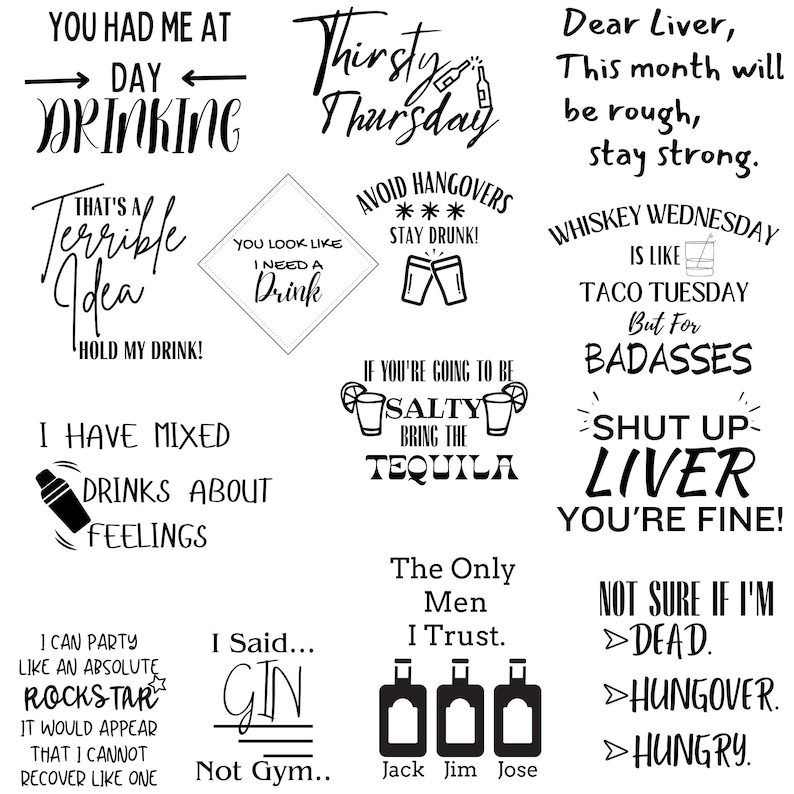 YOU HAD ME AT
DAY
DRINKING
Thirsty
Thursday
Dear Liver,
This month will
be rough,
stay strong.
THAT'S A
Terrible
Idea
HOLD MY DRINK!
YOU LOOK LIKE
I NEED A
Drink
AVOID HANGOVERS
STAY DRUNK!
WHISKEY WEDNESDAY
IS LIKE
TACO TUESDAY
But For
BADASSES
IF YOU'RE GOING TO BE
SALTY
BRING THE
TEQUILA
I HAVE MIXED
DRINKS ABOUT
FEELINGS
SHUT UP
LIVER
YOU'RE FINE!
I CAN PARTY
LIKE AN ABSOLUTE
ROCKSTAR
IT WOULD APPEAR
THAT I CANNOT
RECOVER LIKE ONE
I Said...
GIN
Not Gym..
The Only
Men
I Trust.
Jack Jim Jose
NOT SURE IF I'M
DEAD.
HUNGOVER.
HUNGRY.